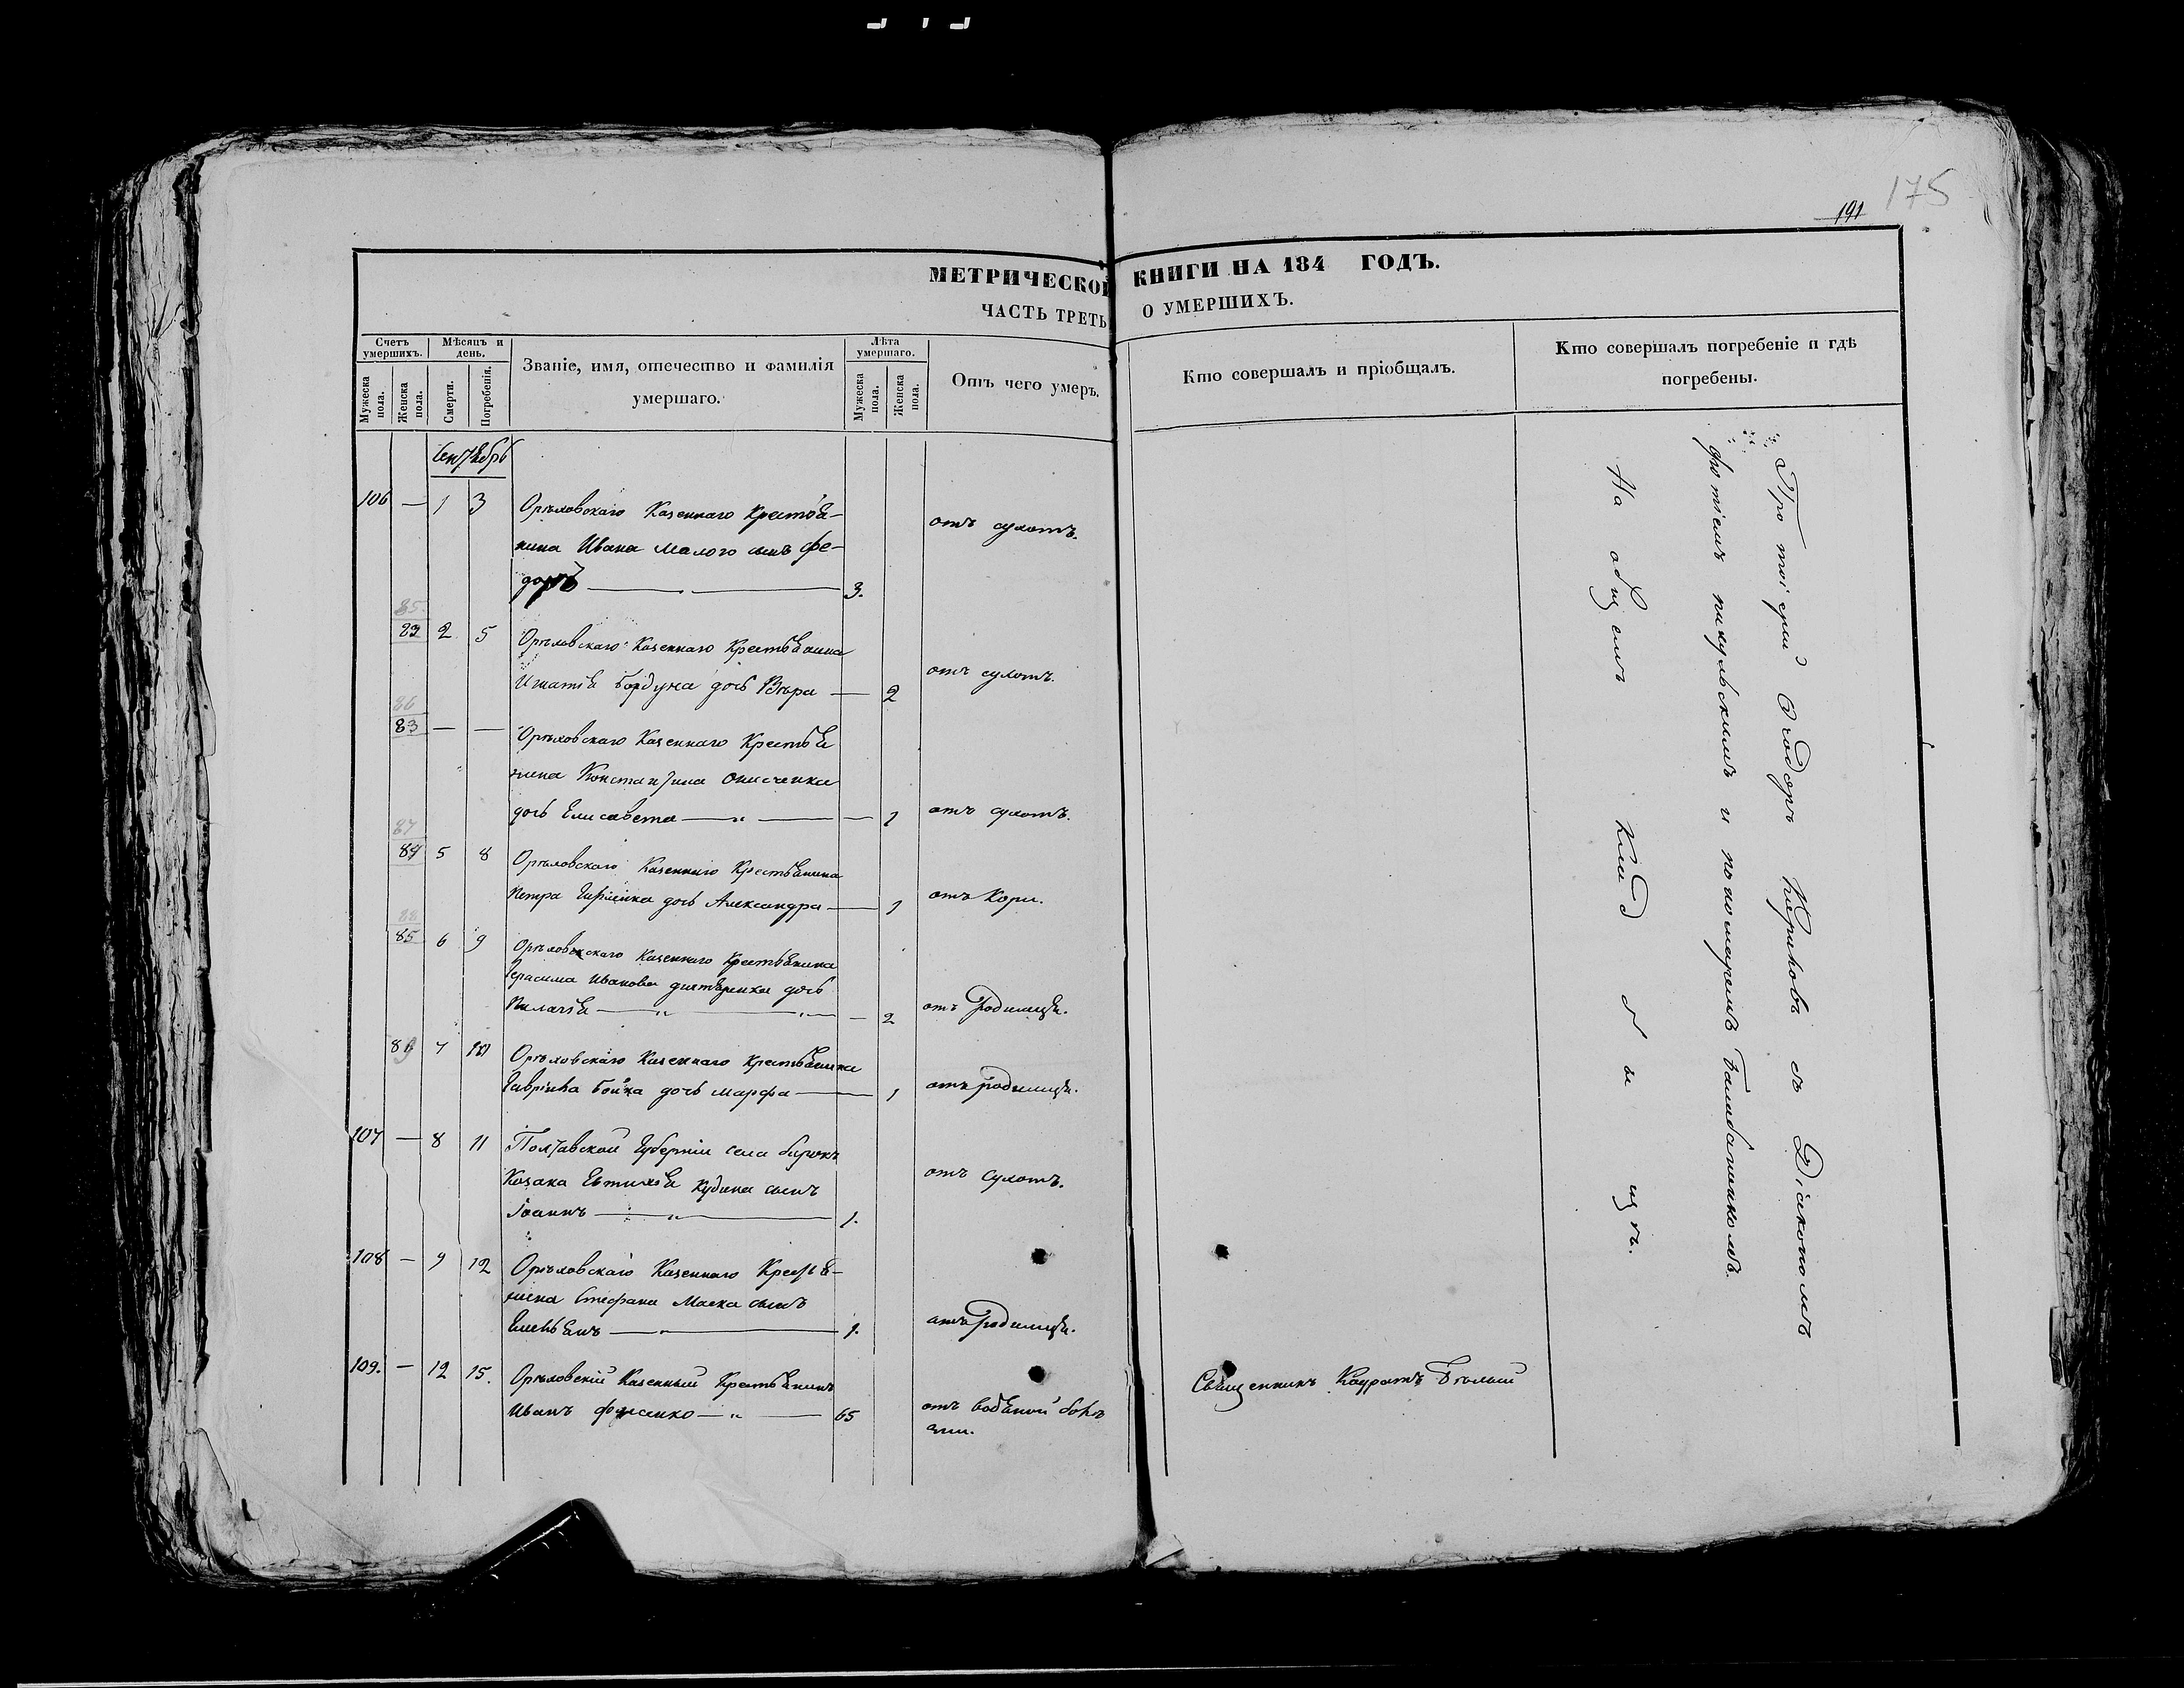 175
191
МЕТРИЧЕСКОЙ КНИГИ НА 184 ГОДЪ.
ЧАСТЬ ТРЕТЬ О УМЕРШИХЪ.
Счетъ умершихъ.
Мужеска пола.
Женска пола.
Мѣсяцъ и день.
Смерти.
Погребенія.
Званіе, имя, отечество и фамилія
умершаго.
Лѣта умершаго.
Мужеска пола.
Женска пола.
Отъ чего умеръ.
Кто совершалъ и пріобщалъ.
Кто совершалъ погребеніе и гдѣ
погребены.
Сентябрь
106 — 1 3 Орѣховскаго Казеннаго Крестья-
нина Ивана Малого сынъ Фе-
доръ — 3. отъ сухотъ.
85.
82 2 5 Орѣховскаго Казеннаго Крестьянина
Игнатія Бордуна дочь Вѣра — 2 отъ сухотъ.
86
83 — — Орѣховскаго Казеннаго Крестья
нина Константина Онисченка
дочь Елисавета — 1 отъ сухотъ.
87
84 5 8 Орѣховскаго Казеннаго Крестьянина
Петра дочь Александра — 1 отъ Кори.
88
85 6 9 Орѣховскаго Казеннаго Крестьянина
Герасима Иванова дочь
Пелагія — 2 отъ Родимца.
7 10 Орѣховскаго Казеннаго Крестьянина
Гавріила Бойка дочь Марфа — 1 отъ родимца.
107 — 8 11 Полтавской Губерніи села
Козака Евтихія Кудина сынъ
Іоаннъ — 1. отъ Сухотъ.
108 — 9 12 Орѣховскаго Казеннаго Кресть-
нина Стефана Маска сынъ
Емельянъ — 1. отъ Родимца.
109. — 12 15. Орѣховскій Казенный Крестьянинъ
Иванъ — 65 отъ водяной болѣ
зни.
Священникъ Кодратъ Бѣлый
Протоіерей Ѳеодоръ съ Діакономъ
Фотіемъ Пикульскимъ и пономаремъ Балабаненкомъ.
На общемъ кладбищѣ.